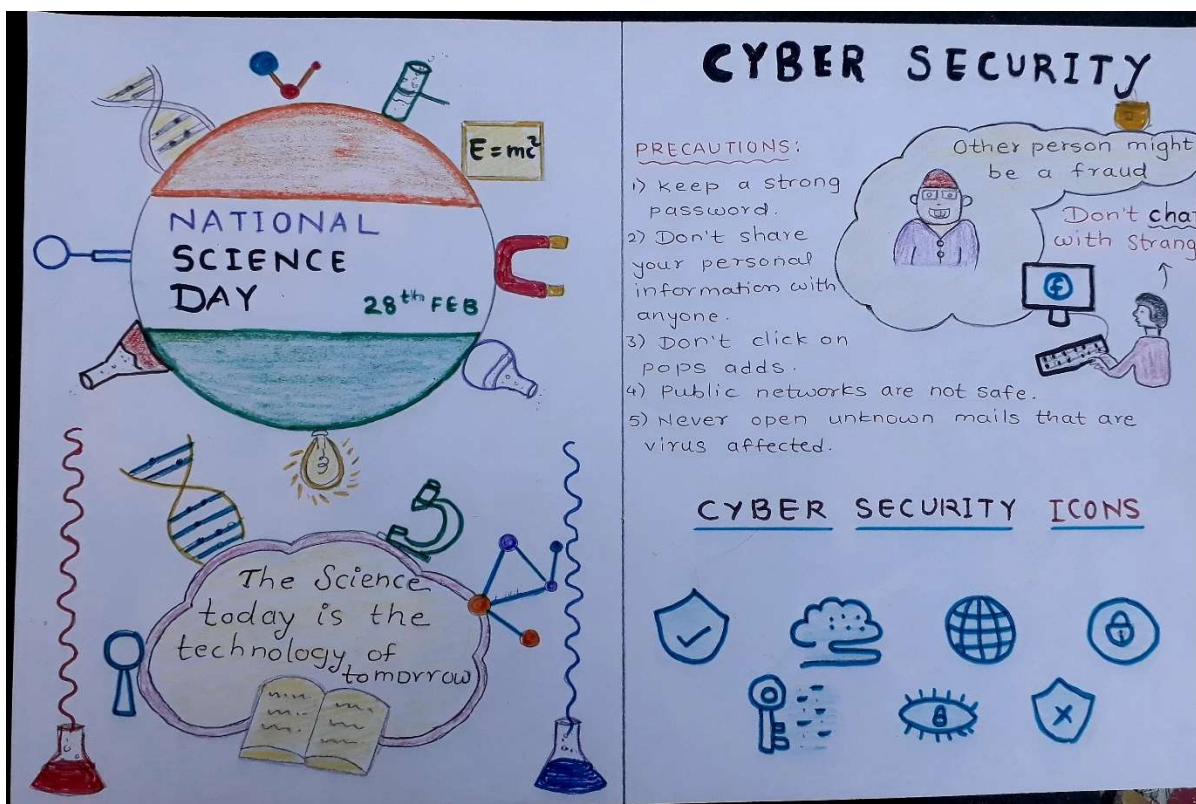 E = mc²
NATIONAL
SCIENCE
DAY
28th FEB
The Science
today is the
technology of
tomorrow
CYBER SECURITY
PRECAUTIONS:
1) Keep a strong
password.
2) Don't share
your personal
information with
anyone.
3) Don't click on
pops adds.
4) Public networks are not safe.
5) Never open unknown mails that are
virus affected.
Other person might
be a fraud
Don't chat
with Strang
f
CYBER SECURITY ICONS